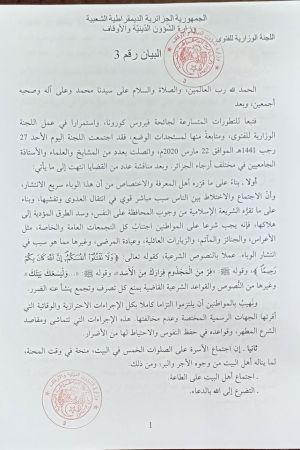 الجمهورية الجزائرية الديمقراطية الشعبية
وزارة الشؤون الدينية والأوقاف
اللجنة الوزارية للفتوى
البيان رقم 3
الحمد لله رب العالمين، والصلاة والسلام على سيدنا محمد وعلى آله وصحبه
أجمعين، وبعد
فتبعا للتطورات المتسارعة لجائحة فيروس كورونا، واستمرارا في عمل اللجنة
الوزارية للفتوى، ومتابعة منها لمستجدات الوضع، فقد اجتمعت اللجنة اليوم الأحد 27
رجب 1441هـ الموافق 22 مارس 2020م، واتصلت بعدد من المشايخ والعلماء والأساتذة
الجامعيين في مختلف أرجاء الجزائر. وبعد مناقشة عدد من القضايا انتهت إلى ما يأتي:
أولا ـ بناء على ما قرّره أهل المعرفة والاختصاص من أن هذا الوباء سريع الانتشار،
وأنّ الاجتماع والاختلاط بين الناس سبب مباشر قوي في انتقال العدوى وتفشيها، وبناء
على ما تقرّه الشريعة الإسلامية من وجوب المحافظة على النفس، وسد الطرق المؤدية إلى
هلاكها؛ فإنه يجب شرعا على المواطنين اجتناب كلّ التجمعات العامة والخاصة، مثل
الأعراس، والجنائز والمآتم، والزيارات العائلية، وعيادة المرضى، وغيرها مما هو سبب في
انتشار الوباء. عملا بالنصوص الشرعية، كقوله تعالى: ﴿وَلَا تَقْتُلُوا أَنْفُسَكُمْ إِنَّ اللَّهَ كَانَ بِكُمْ
رَحِيمًا﴾ وقوله ﷺ: «فِرَّ مِنَ الْمَجْذُومِ فِرَارَكَ مِنَ الأَسَدِ» وقوله ﷺ: «وَلْيَسَعْكَ بَيْتُكَ»
وغيرها من النّصوص والقواعد الشرعية القاضية بمنع كل تصرف وتجمع ينشأ عنه الضرر.
ونهيب بالمواطنين أن يلتزموا التزاما كاملا بكل الإجراءات الاحترازية والوقائية التي
أقرتها الجهات الرسمية المختصة وعدم مخالفتها. هذه الإجراءات التي تتماشى ومقاصد
الشرع المطهر، وقواعده في حفظ النفوس والاحتياط لها من الأضرار.
ثانيا ـ إن اجتماع الأسرة على الصلوات الخمس في البيت؛ منحة في وقت المحنة،
لما يناله أهل البيت من وجوه الأجر والبر، ومن ذلك:
ـ اجتماع أهل البيت على الطاعة.
ـ التضرع إلى الله بالدعاء.
1